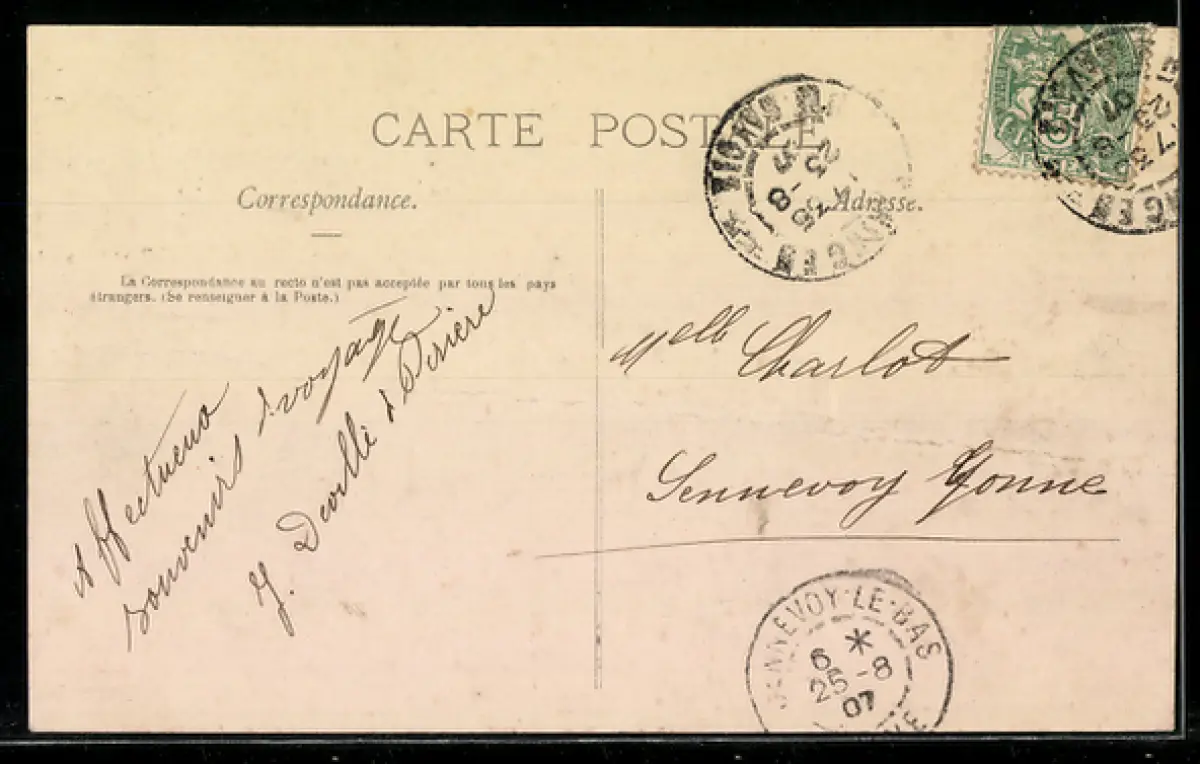 CARTE POSTALE
Correspondance.
Adresse.
La Correspondance au recto n'est pas acceptée par tous les pays
étrangers. (Se renseigner à la Poste.)
Affectueux
souvenirs d voyage
J. Deville &
Melle Charlot
Sennevoy Yonne
SENNEVOY-LE-BAS
6 *
25-8
07